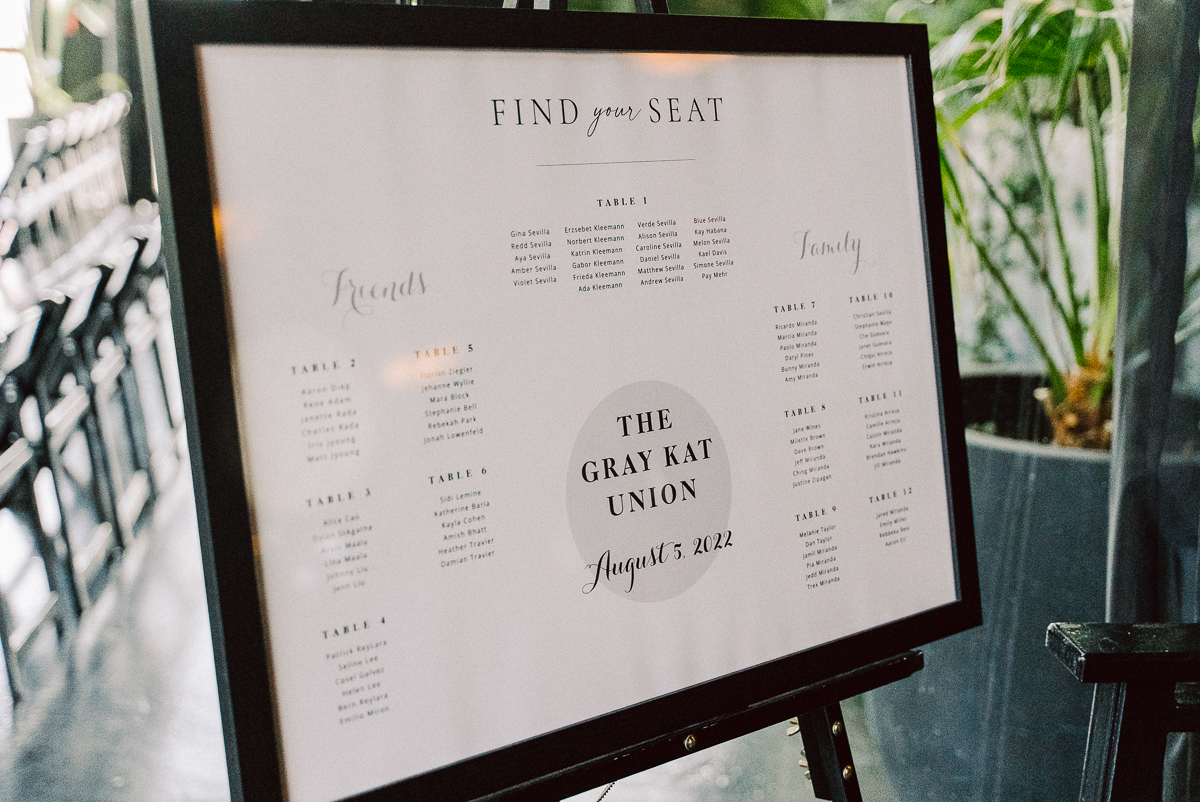 FIND your SEAT
TABLE 1
Gina Sevilla
Redd Sevilla
Aya Sevilla
Amber Sevilla
Violet Sevilla
Erzsebet Kleemann
Norbert Kleemann
Katrin Kleemann
Gabor Kleemann
Frieda Kleemann
Ada Kleemann
Verde Sevilla
Alison Sevilla
Caroline Sevilla
Daniel Sevilla
Matthew Sevilla
Andrew Sevilla
Blue Sevilla
Kay Habana
Melon Sevilla
Kael Davis
Simone Sevilla
Pay Mehr
Friends
TABLE 2
Aaron Diep
Kene Adam
Janette Rada
Charles Rada
Iris Jyoung
Matt Jyoung
TABLE 3
Alice Cao
Dylan
Maala
Lina Maala
Johnny Liu
Jenn Liu
TABLE 4
Patrick ReyLara
Saline Lee
Casel Galvez
Helen Lee
Bern Reylara
Emilio Miron
TABLE 5
Florian Ziegler
Jehanne Wyllie
Mara Block
Stephanie Bell
Rebekah Park
Jonah Lowenfeld
TABLE 6
Sidi Lemine
Katherine Baria
Kayla Cohen
Amish Bhatt
Heather Travier
Damian Travier
THE
GRAY KAT
UNION
August 5, 2022
Family
TABLE 7
Ricardo Miranda
Marcia Miranda
Paolo Miranda
Daryl Pines
Bunny Miranda
Amy Miranda
TABLE 8
Jane Wines
Milette Brown
Dave Brown
Jeff Miranda
Ching Miranda
Justine Zipagan
TABLE 9
Melanie Taylor
Dan Taylor
Jamil Miranda
Pia Miranda
Jedd Miranda
Trex Miranda
TABLE 10
Christian Sevilla
Stephanie Mayo
Che Guevara
Janet Guevara
Chiqui Arreza
Erwin Arreza
TABLE 11
Kristina Arreza
Camille Arreza
Caitlin Miranda
Kara Miranda
Brendan Hawkins
Jill Miranda
TABLE 12
Jared Miranda
Emily Miller
Rebbeka
Aaron